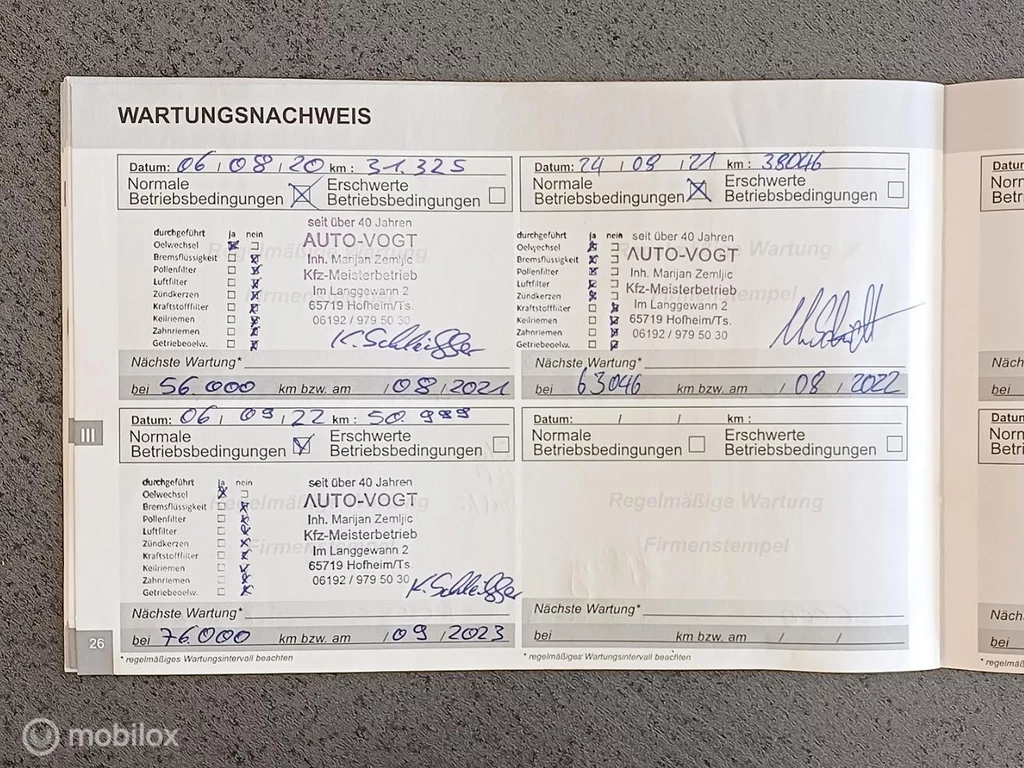 WARTUNGSNACHWEIS
Datum: 06 / 08 / 20 km: 31.325
Normale Betriebsbedingungen ☒ Erschwerte Betriebsbedingungen ☐
seit über 40 Jahren
durchgeführt ja nein
AUTO-VOGT
Oelwechsel ☒ ☐
Inh. Marijan Zemljic
Bremsflüssigkeit ☐ ☒
Kfz-Meisterbetrieb
Pollenfilter ☐ ☒
Im Langgewann 2
Luftfilter ☐ ☒
65719 Hofheim/Ts.
Zündkerzen ☐
06192 / 979 50 30
Kraftstofffilter ☐ ☒
Keilriemen ☐ ☒
Zahnriemen ☐ ☒
Getriebeoelw. ☐ ☒
Regelmäßige Wartung
Firmenstempel
K. Schleiffer
Nächste Wartung*
bei 56.000 km bzw. am / 08 / 2021
Datum: 24 / 08 / 21 km: 38046
Normale Betriebsbedingungen ☒ Erschwerte Betriebsbedingungen ☐
seit über 40 Jahren
durchgeführt ja nein
AUTO-VOGT
Oelwechsel ☒ ☐
Inh. Marijan Zemljic
Bremsflüssigkeit ☒ ☐
Kfz-Meisterbetrieb
Pollenfilter ☒ ☐
Im Langgewann 2
Luftfilter ☒ ☐
65719 Hofheim/Ts.
Zündkerzen ☒ ☐
06192 / 979 50 30
Kraftstofffilter ☐ ☒
Keilriemen ☐ ☒
Zahnriemen ☐ ☒
Getriebeoelw. ☐ ☒
Regelmäßige Wartung
Firmenstempel
Nächste Wartung*
bei 63046 km bzw. am / 08 / 2022
III
Datum: 06 / 09 / 22 km: 50.999
Normale Betriebsbedingungen ☒ Erschwerte Betriebsbedingungen ☐
seit über 40 Jahren
durchgeführt ja nein
AUTO-VOGT
Oelwechsel ☒ ☐
Inh. Marijan Zemljic
Bremsflüssigkeit ☐ ☒
Kfz-Meisterbetrieb
Pollenfilter ☐ ☒
Im Langgewann 2
Luftfilter ☐ ☒
65719 Hofheim/Ts.
Zündkerzen ☐ ☒
06192 / 979 50 30
Kraftstofffilter ☐ ☒
Keilriemen ☐ ☒
Zahnriemen ☐ ☒
Getriebeoelw. ☐ ☒
Regelmäßige Wartung
Firmenstempel
K. Schleiffer
Nächste Wartung*
bei 76.000 km bzw. am / 09 / 2023
* regelmäßiges Wartungsintervall beachten
Datum: / / km:
Normale Betriebsbedingungen ☐ Erschwerte Betriebsbedingungen ☐
Regelmäßige Wartung
Firmenstempel
Nächste Wartung*
bei km bzw. am / /
* regelmäßiges Wartungsintervall beachten
26
Datum:
bei
Datum:
bei
mobilox